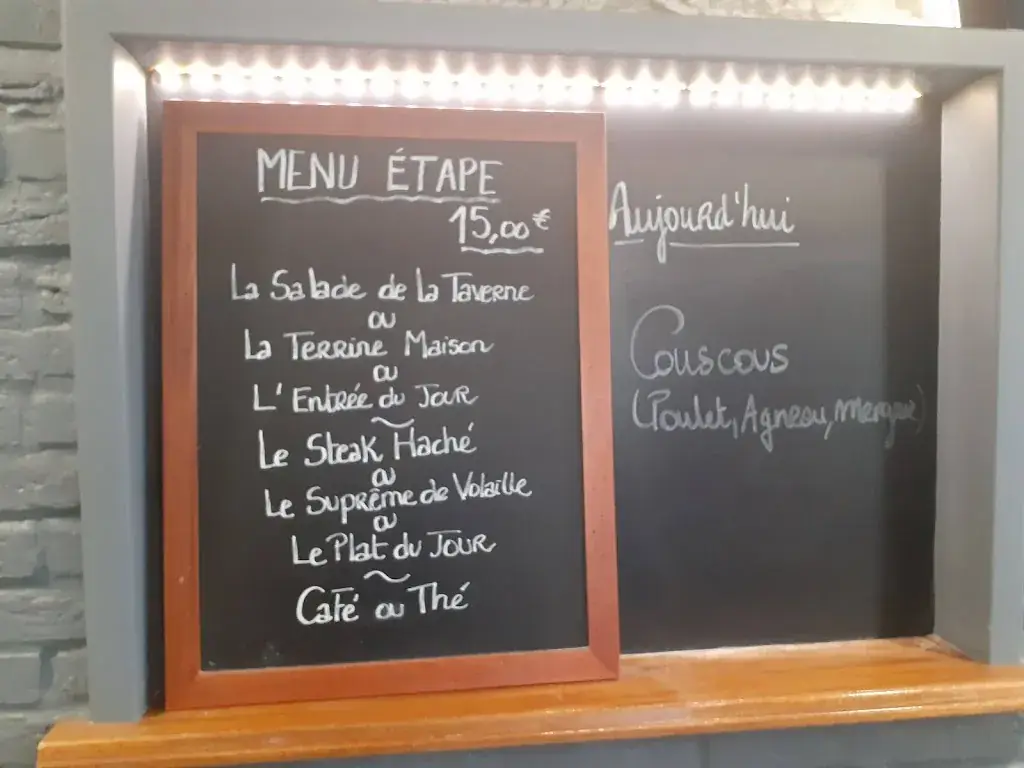 MENU ÉTAPE
15,00€
La Salade de la Taverne
ou
La Terrine Maison
ou
L'Entrée du Jour
~
Le Steak Haché
ou
Le Suprême de Volaille
ou
Le Plat du Jour
~
Café ou Thé
Aujourd'hui
Couscous
(Poulet, Agneau,